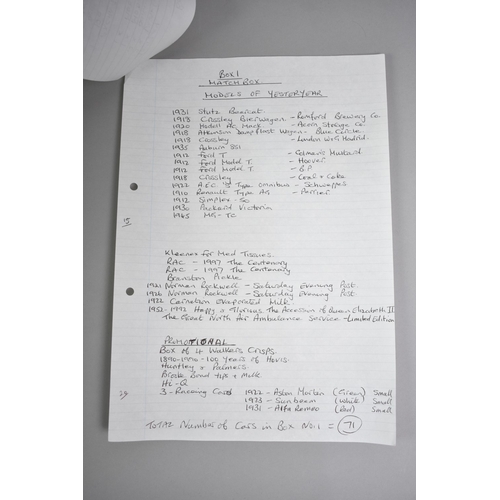 Box 1
MATCHBOX
MODELS OF YESTERYEAR
1931 Stutz Bearcat
1918 Crossley Beerwagon - Romford Brewery Co
1920 Model AC Mack - Acorn Storage Co
1918 Atkinson Steam Wagon - Blue Circle
1918 Crossley - London
1935 Auburn 851
1912 Ford T - Colman's Mustard
1912 Ford Model T. - Hoover
1912 Ford Model T. - B.P
1918 Crossley - Coal & Coke
1922 A.E.C. S Type Omnibus - Schweppes
1910 Renault Type AG - Perrier
1912 Simplex-50
1930 Packard Victoria
1945 MG-TC
Kleenex for Men Tissues.
RAC - 1997 The Centenary
RAC - 1997 The Centenary
Branston Pickle
1921 Norman Rockwell - Saturday Evening Post.
1926 Norman Rockwell - Saturday Evening Post
1932 Carnation Evaporated Milk
1952-1992 Happy & Glorious The Accession of Queen Elizabeth II
The Great North Air Ambulance Service - Limited Edition
PROMOTIONAL
Box of 4 Walkers Crisps.
1890-1990 - 100 Years of Hovis.
Huntley & Palmers.
Brooke Bond tips & Milk
Hi-Q
29
3 - Racing Cars 1922 - Aston Martin (Green) Small
1923 - Sunbeam (White) Small
1931 - Alfa Romeo (Red) Small
TOTAL Number of Cars in Box No.1 = 71